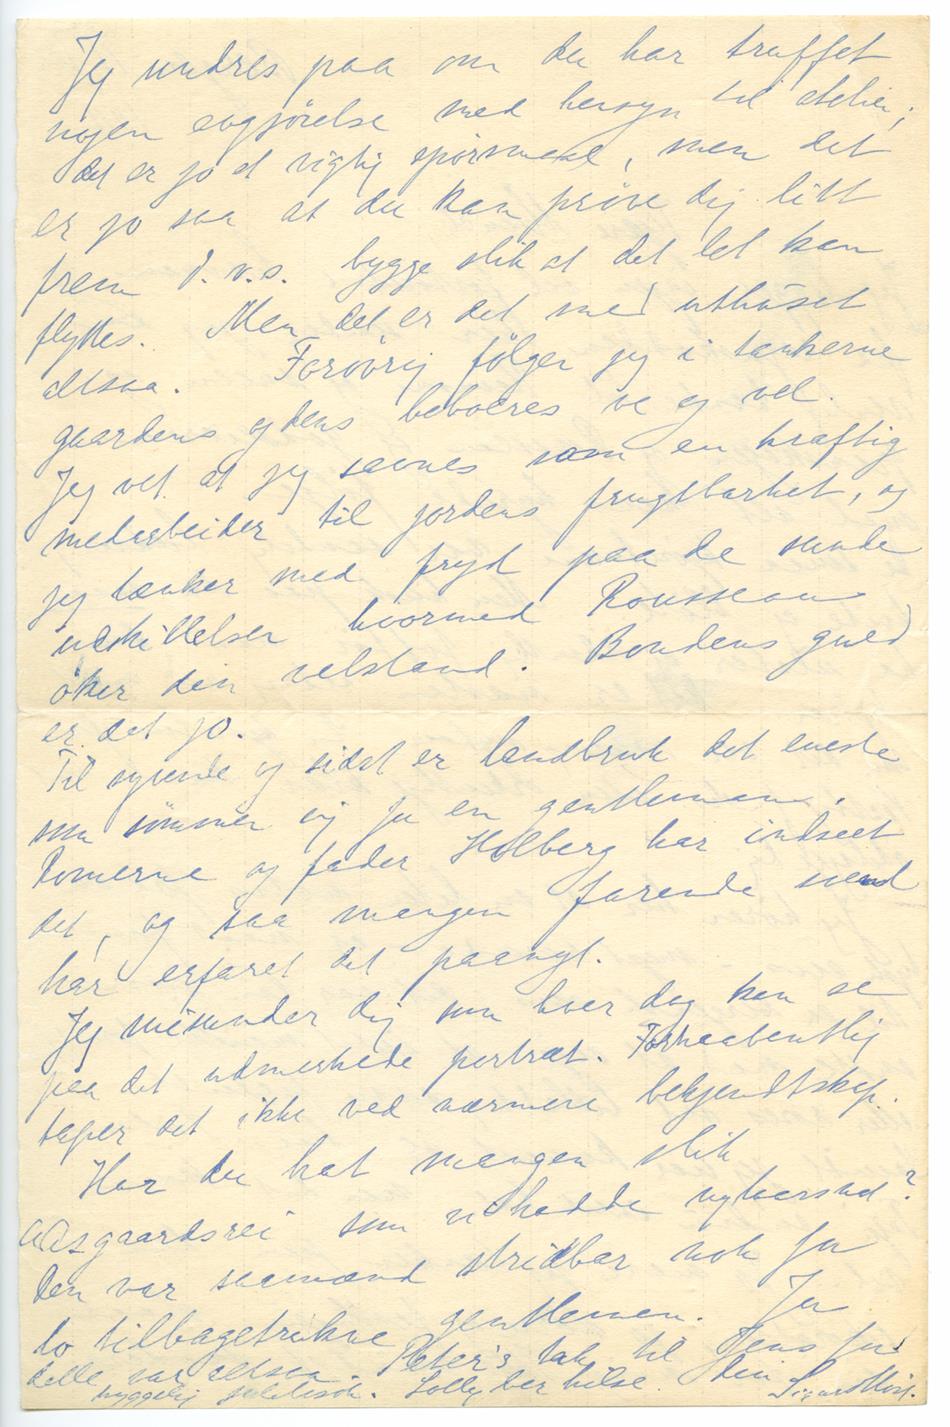 Jeg undres paa om du har truffet
nogen avgjørelse med hensyn til atelier;
det er jo et vigtig spørsmaal, men det
er jo saa at du kan prøve dig litt
frem d.v.s. bygge slik at det let kan
flyttes. Men det er det med uthuset
altsaa. Forøvrig følger jeg i tankerne
gaardens og dens beboeres ve og vel.
Jeg vet at jeg savnes som en kraftig
medarbeider til jordens frugtbarhet, og
jeg tænker med fryd paa de sunde
utskillelser hvormed Rousseau
øker din velstand. Bondens guld
er det jo.
Til syvende og sidst er landbruk det eneste
som sømmer sig for en gentleman.
Romerne og fader Holberg har indseet
det, og saa mangen farende svend
har erfaret det paangt.
Jeg misunder dig som hver dag kan se
paa det utmerkede portræt. Forhaabentlig
taper det ikke ved nærmere bekjendtskap.
Har du hat mangen slik
Aasgaardsrei som vi hadde nyaarsnat?
Den var saamænd stridbar nok for
to tilbagetrukne gentlemen. Jens
Peter's tak til Jens for
dette var altsaa
hyggelig julebesøk. Lolly ber hilse. Din